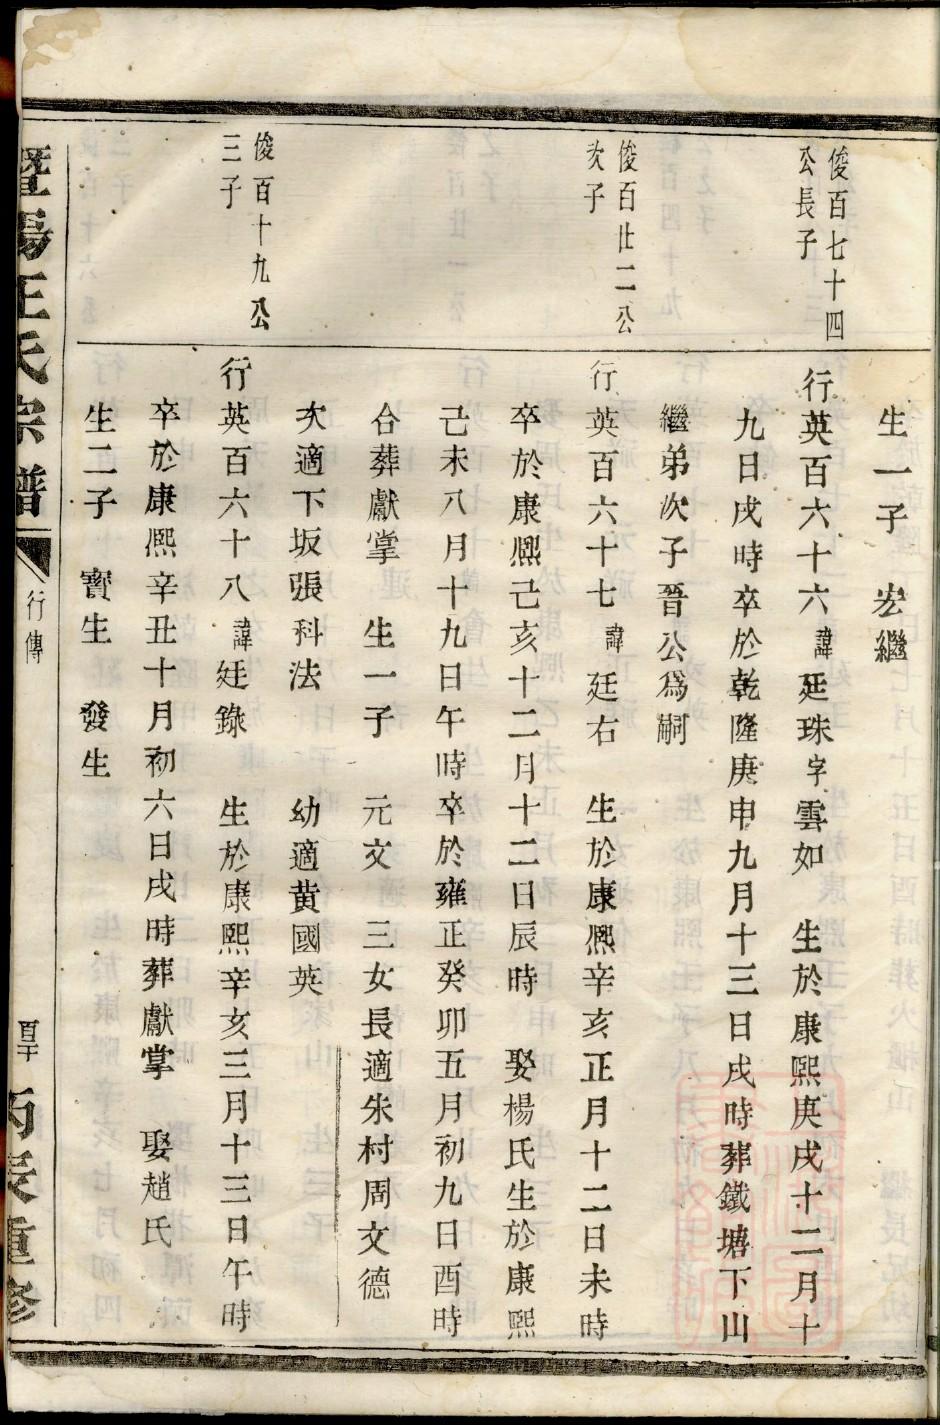 生一子　宏繼
俊百七十四
公長子
行英百六十六諱廷珠字雲如　生於康熙庚戌十二月十
九日戌時卒於乾隆庚申九月十三日戌時葬鐵塘下山
繼弟次子晉公為嗣
俊百廿二公
次子
行英百六十七諱廷右　生於康熙辛亥正月十二日未時
卒於康熙己亥十二月十二日辰時　娶楊氏生於康熙
己未八月十九日午時卒於雍正癸卯五月初九日酉時
合葬獻掌　生一子　元文　三女長適朱村周文德
次適下坂張科法　　幼適黄國英
俊百十九公
三子
行英百六十八諱廷錄　生於康熙辛亥三月十三日午時
卒於康熙辛丑十月初六日戌時葬獻掌　娶趙氏
生二子　寶生　發生
暨陽王氏宗譜　行傳　丙辰重修